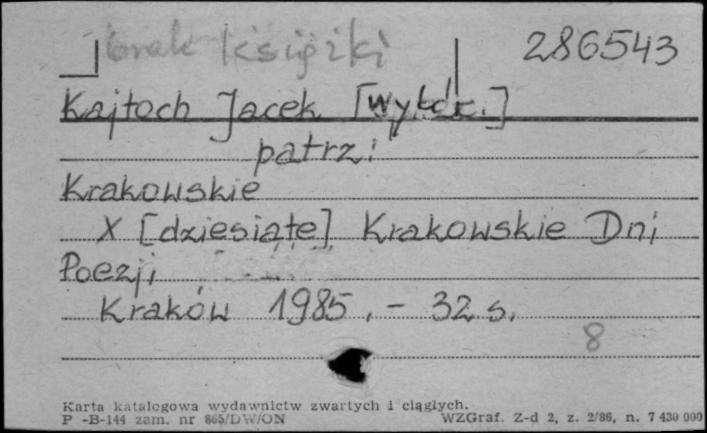 brak książki 286543
Kajtoch Jacek [wybór.]
patrz:
Krakowskie
X [dziesiąte] Krakowskie Dni
Poezji
Kraków 1985. - 32 s.
8
Karta katalogowa wydawnictw zwartych i ciągłych.
P -B-144 zam. nr 865/DW/ON WZGraf. Z-d 2, z. 2/86, n. 7 430 000